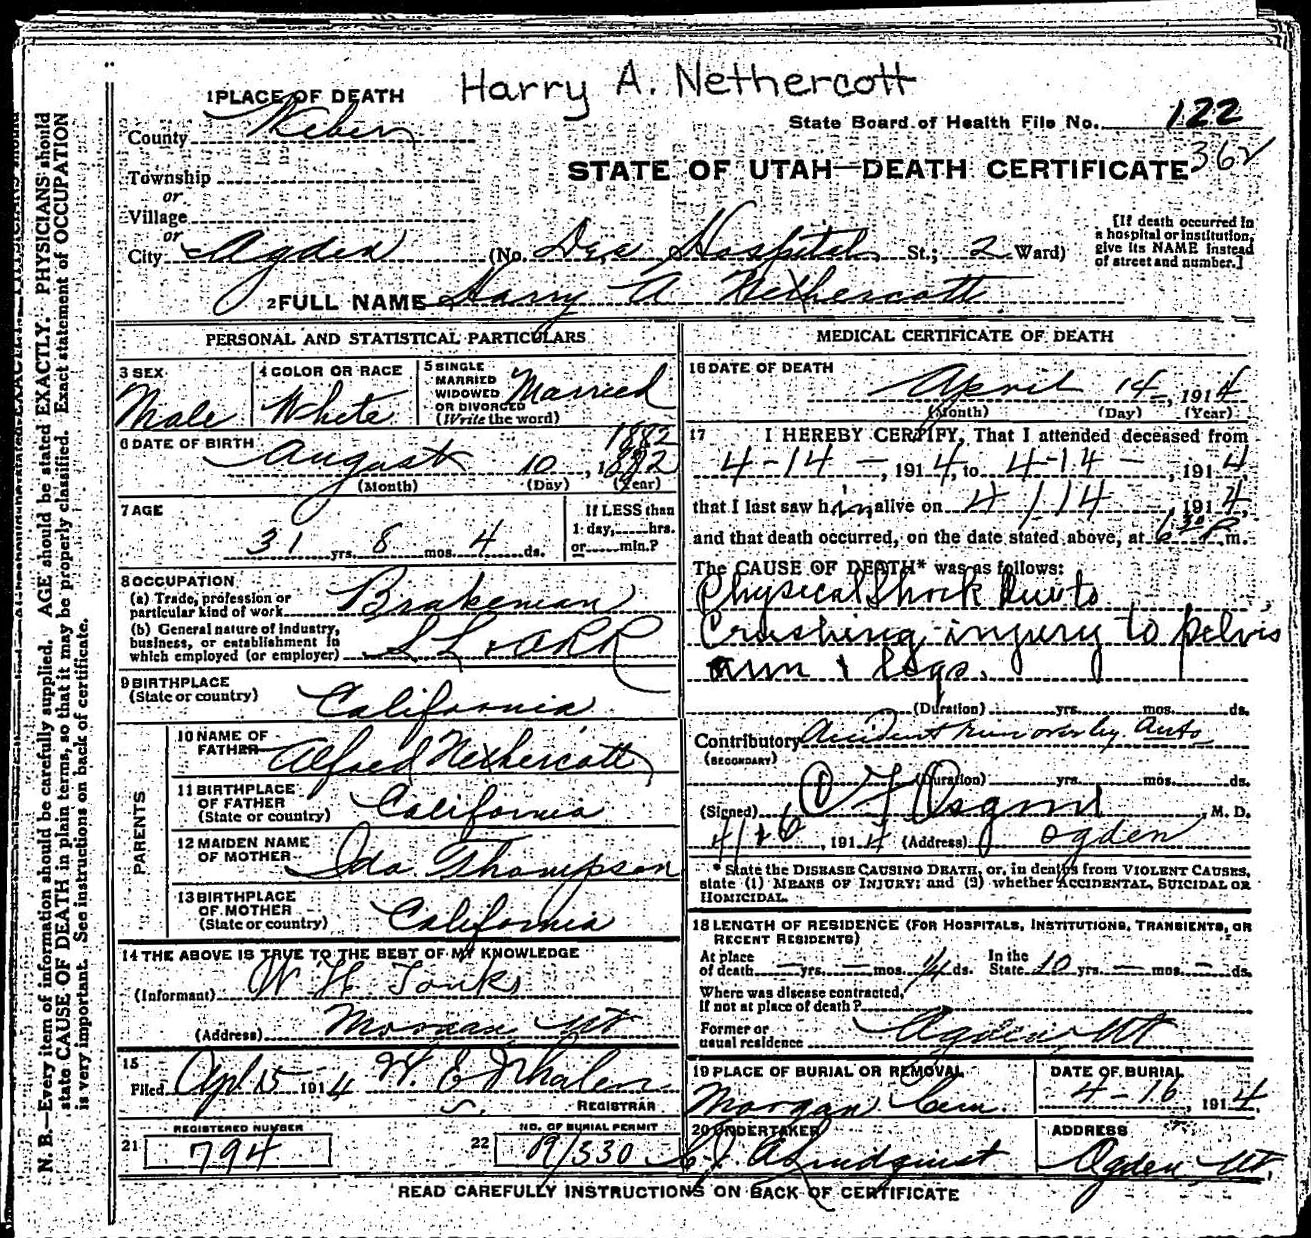 Harry A. Nethercott
1 PLACE OF DEATH
County Weber
State Board of Health File No. 122
362
Township
or
Village
or
City Ogden (No. Dee Hospital St.; 2 Ward)
STATE OF UTAH—DEATH CERTIFICATE
[If death occurred in
a hospital or institution,
give its NAME instead
of street and number.]
2 FULL NAME Harry A Nethercott
PERSONAL AND STATISTICAL PARTICULARS
3 SEX Male
4 COLOR OR RACE White
5 SINGLE
MARRIED
WIDOWED
OR DIVORCED
(Write the word) Married
6 DATE OF BIRTH 1882
August 10, 1882
(Month) (Day) (Year)
7 AGE
31 yrs. 8 mos. 4 ds.
If LESS than
1 day, hrs.
or min.?
8 OCCUPATION
(a) Trade, profession or
particular kind of work Brakeman
(b) General nature of industry,
business, or establishment in
which employed (or employer) S L & O R R
9 BIRTHPLACE
(State or country) California
PARENTS
10 NAME OF
FATHER Alfred Nethercott
11 BIRTHPLACE
OF FATHER
(State or country) California
12 MAIDEN NAME
OF MOTHER Ida Thompson
13 BIRTHPLACE
OF MOTHER
(State or country) California
14 THE ABOVE IS TRUE TO THE BEST OF MY KNOWLEDGE
(Informant) W H Tonks
(Address) Morgan Ut
15
Filed Apl 15 1914 H. E. Whalen
REGISTRAR
21 REGISTERED NUMBER
794
22 NO. OF BURIAL PERMIT
19/330
MEDICAL CERTIFICATE OF DEATH
16 DATE OF DEATH
April 14, 1914
(Month) (Day) (Year)
17 I HEREBY CERTIFY, That I attended deceased from
4-14-, 1914, to 4-14-, 1914
that I last saw him alive on 4/14, 1914,
and that death occurred, on the date stated above, at 6 30 P m.
The CAUSE OF DEATH* was as follows:
Physical Shock due to
Crushing injury to pelvis
arm & legs.
(Duration) yrs. mos. ds.
Contributory Accident run over by Auto
(SECONDARY)
(Duration) yrs. mos. ds.
(Signed) O F Osgood, M. D.
4/16, 1914 (Address) Ogden
* State the DISEASE CAUSING DEATH, or, in deaths from VIOLENT CAUSES,
state (1) MEANS OF INJURY; and (2) whether ACCIDENTAL, SUICIDAL OR
HOMICIDAL.
18 LENGTH OF RESIDENCE (FOR HOSPITALS, INSTITUTIONS, TRANSIENTS, OR
RECENT RESIDENTS)
At place
of death — yrs. — mos. ds.
In the
State 10 yrs. — mos. — ds.
Where was disease contracted,
if not at place of death?
Former or
usual residence Ogden Ut
19 PLACE OF BURIAL OR REMOVAL
Morgan Cem
DATE OF BURIAL
4-16, 1914.
20 UNDERTAKER
Lindquist
ADDRESS
Ogden Ut.
READ CAREFULLY INSTRUCTIONS ON BACK OF CERTIFICATE
N. B.—Every item of information should be carefully supplied. AGE should be stated EXACTLY. PHYSICIANS should
state CAUSE OF DEATH in plain terms, so that it may be properly classified. Exact statement of OCCUPATION
is very important. See instructions on back of certificate.